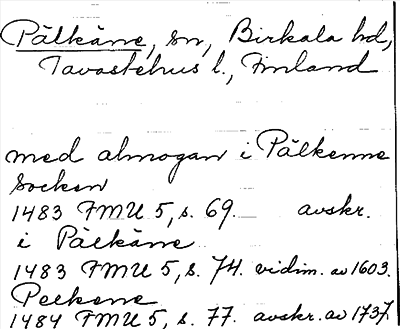 Pälkäne, sn, Birkala hd,
Tavastehus l., Finland
med almogan i Pälkenne
Socken
1483 FMU 5, s. 69. avskr.
i Pälkäne
1483 FMU 5, s. 74. vidim. av 1603.
Pelkene
1484 FMU 5, s. 77. avskr. av 1737.